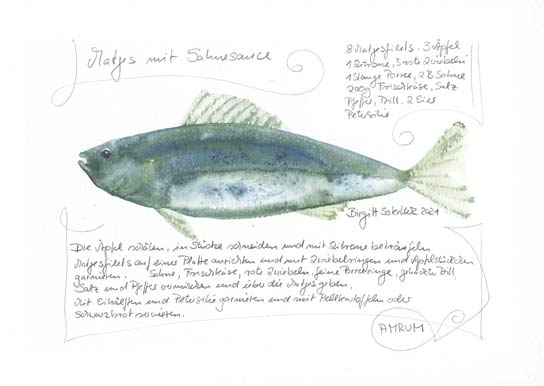 Matjes mit Sahnesauce
8 Matjesfilets. 3 Äpfel
1 Zitrone, 3 rote Zwiebeln
1 Stange Porree, 2 B. Sahne
200g Frischkäse, Salz
Pfeffer, Dill. 2 Eier
Petersilie
Birgitt 2021
Die Äpfel schälen, in Stücke schneiden und mit Zitrone beträufeln
Matjesfilets auf einer Platte anrichten und mit Zwiebelringen und Apfelstücken
garnieren. Sahne, Frischkäse, rote Zwiebeln, feine Porreeringe, gehackten Dill
Salz und Pfeffer vermischen und über die Matjes geben.
Mit Eihälften und Petersilie garnieren und mit Pellkartoffeln oder
Schwarzbrot servieren.
AMRUM